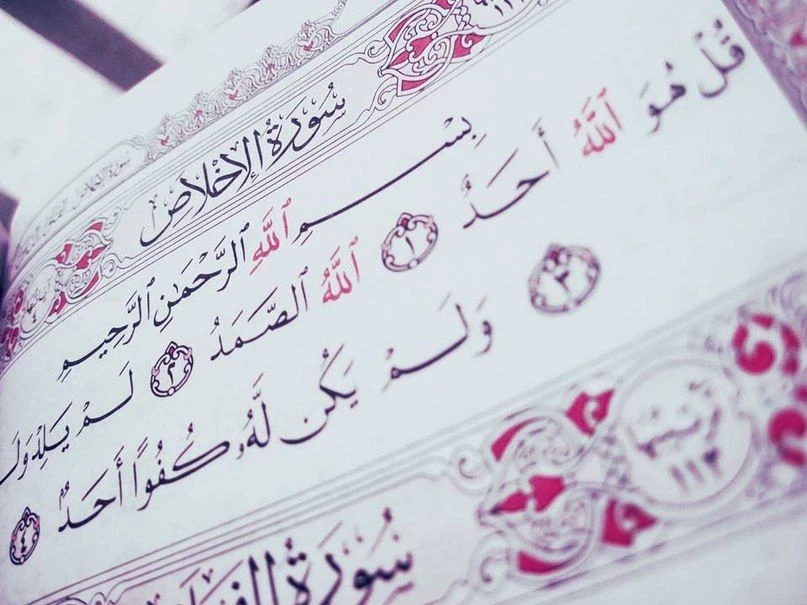 سُورَةُ الإِخْلَاصِ
بِسْمِ ٱللَّهِ ٱلرَّحْمَٰنِ ٱلرَّحِيمِ
قُلْ هُوَ ٱللَّهُ أَحَدٌ ١ ٱللَّهُ ٱلصَّمَدُ ٢ لَمْ يَلِدْ وَلَ
٣ وَلَمْ يَكُن لَّهُۥ كُفُوًا أَحَدٌۢ ٤
سُورَةُ
ترتيبها ١١٣